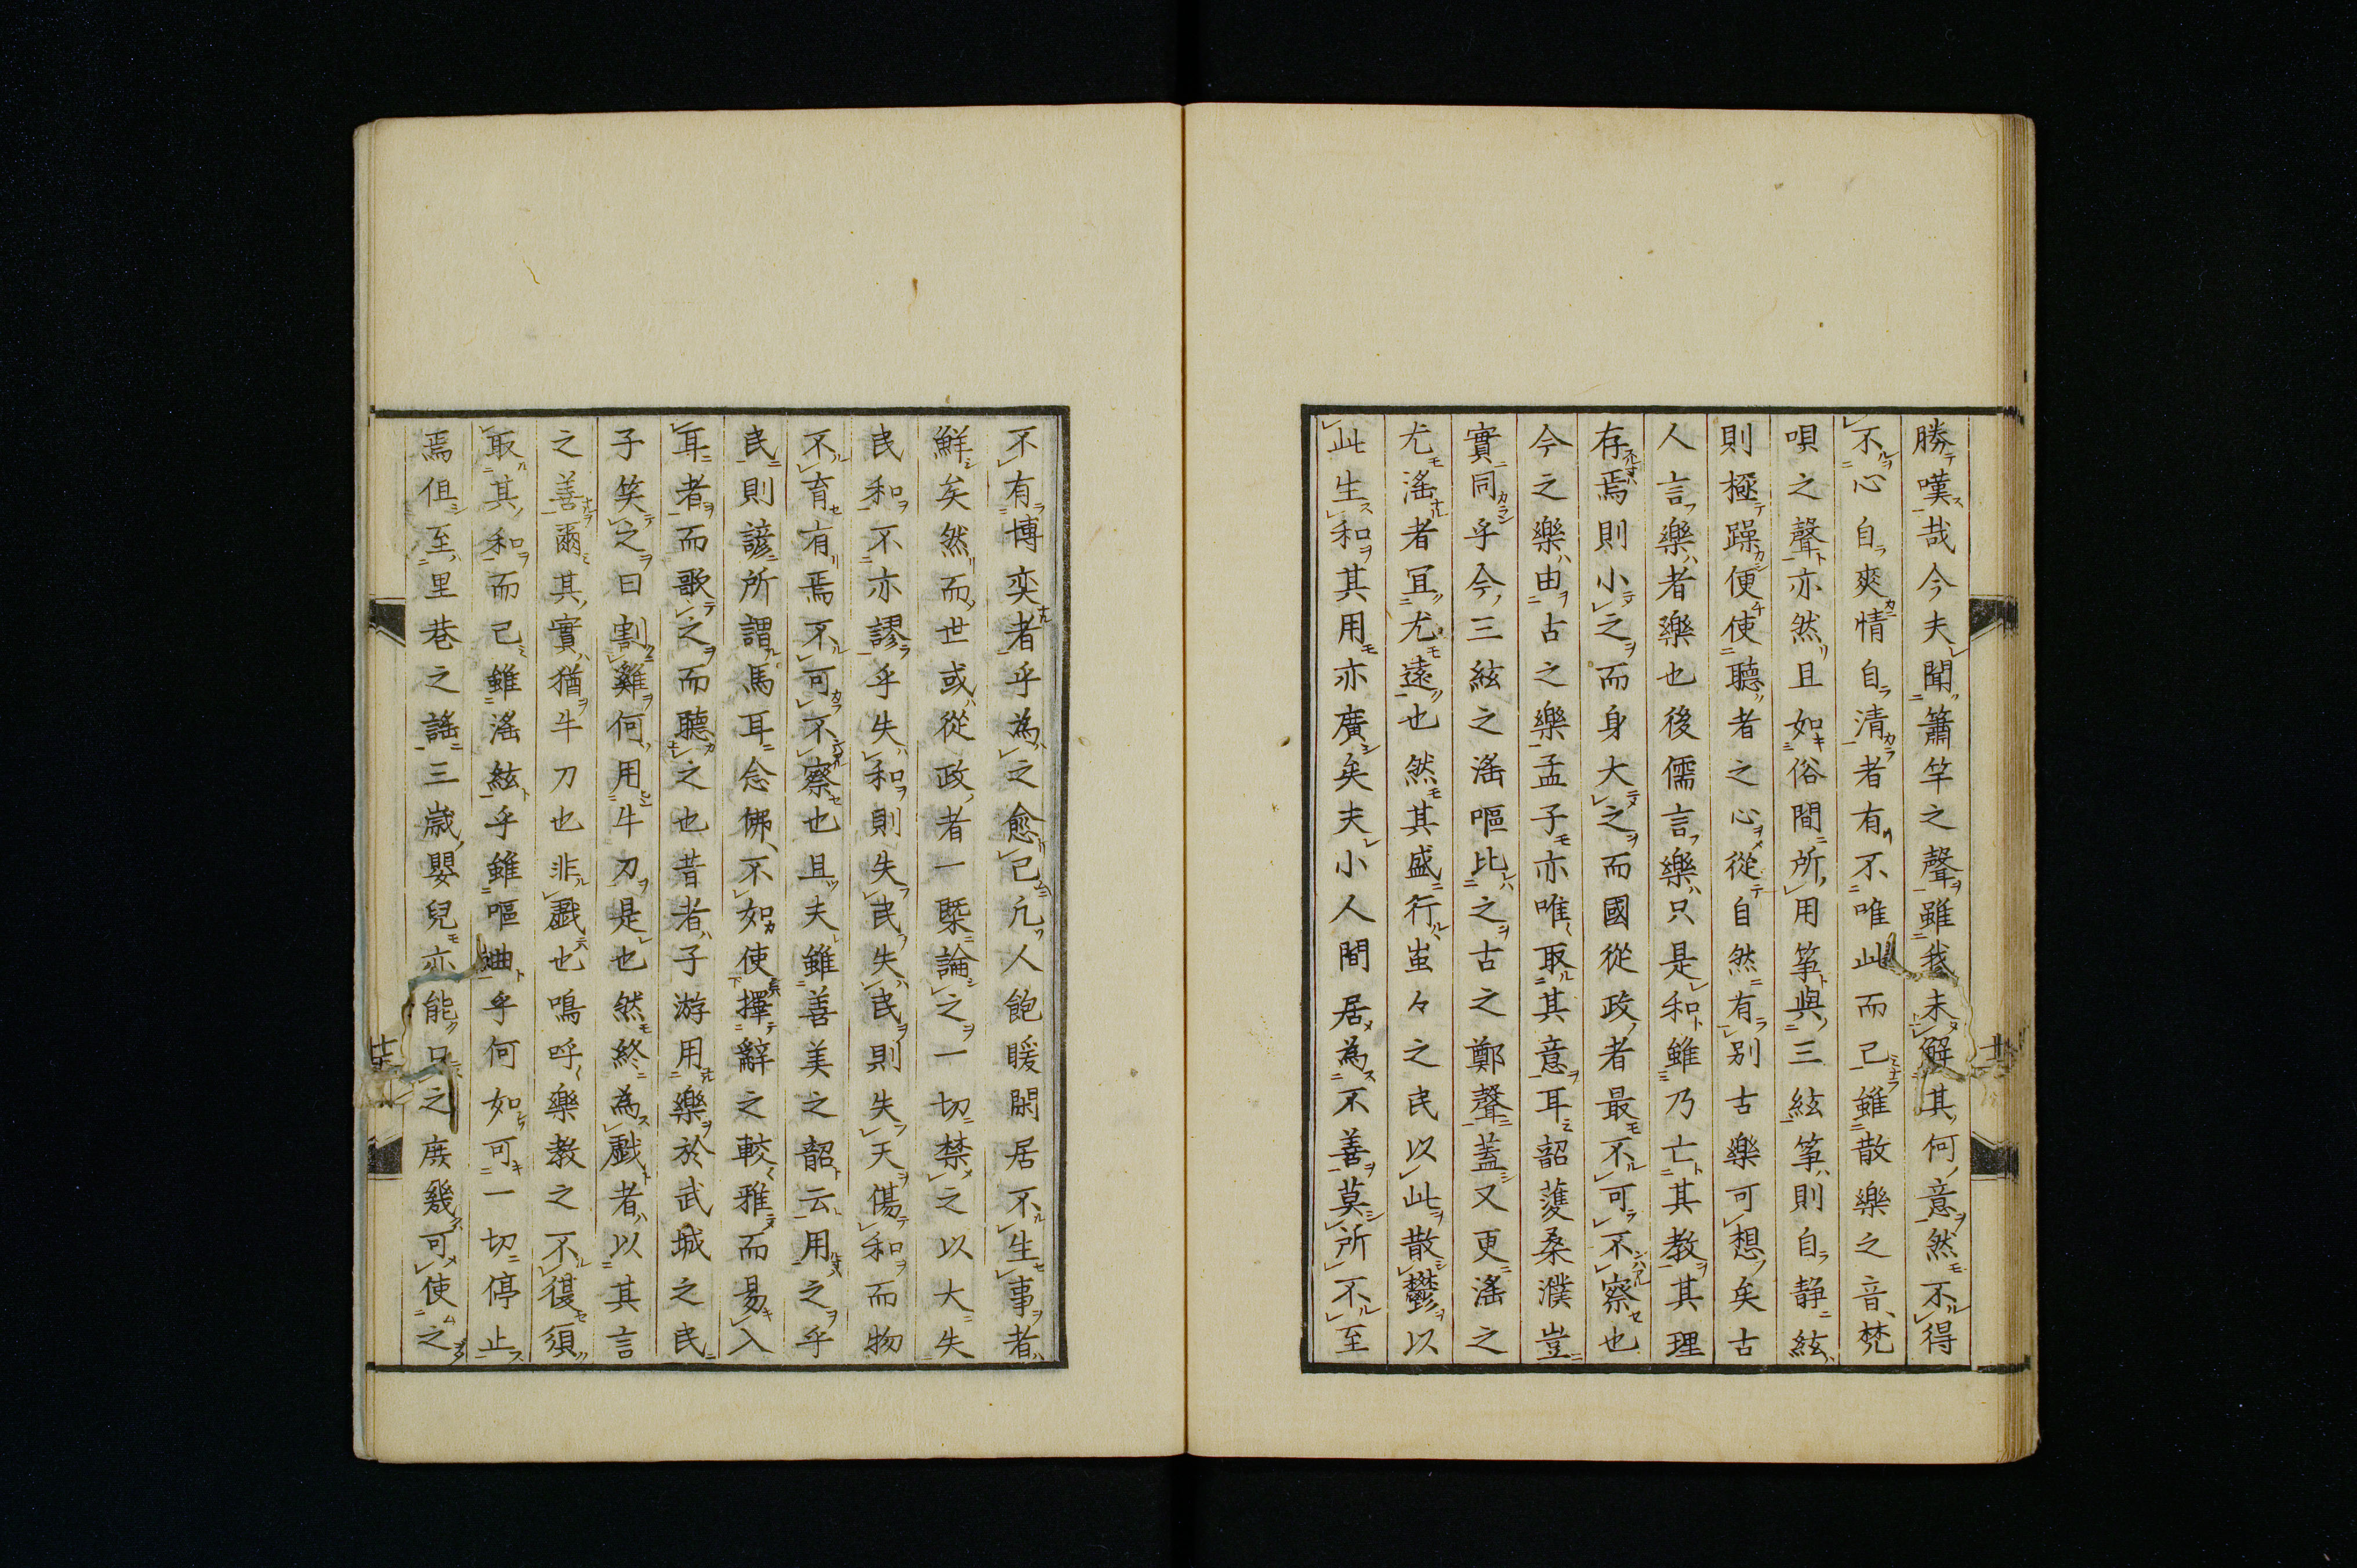 勝嘆哉今夫聞簫竿之聲雖我未解其何意然不得
不心自爽情自清者有不唯此而已雖散樂之音梵
唄之聲亦然且如俗間所用箏與三絃箏則自静絃
則極躁便使聽者之心從自然有别古樂可想矣古
人言樂者樂也後儒言樂只是和雖乃亡其教其理
存焉則小之而身大之而國從政者最不可不察也
今之樂由古之樂孟子亦唯取其意耳韶頀桑濮豈
實同乎今三絃之滛嘔比之古之鄭聲蓋又更滛之
尤滛者冝尤遠也然其盛行蚩々之民以此散欝以
此生和其用亦廣矣夫小人間居為不善莫所不至
不有博奕者乎為之愈已凢人飽暖閑居不生事者
鮮矣然而世或從政者一槩論之一切禁之以大失
民和不亦謬乎失和則失民失民則失天傷和而物
不育有焉不可不察也且夫雖善美之韶云用之乎
民則諺所謂馬耳念佛不如使擇辭之較雅而易入
耳者而歌之而聽之也昔者子游用樂於武城之民
子笑之曰割雞何用牛刀是也然終為戲者以其言
之善爾其實猶牛刀也非戲也鳴呼樂教之不復須
取其和而已雖滛絃乎雖嘔曲乎何如可一切停止
焉但至里巷之謡三歳嬰兒亦能口之庻幾可使之